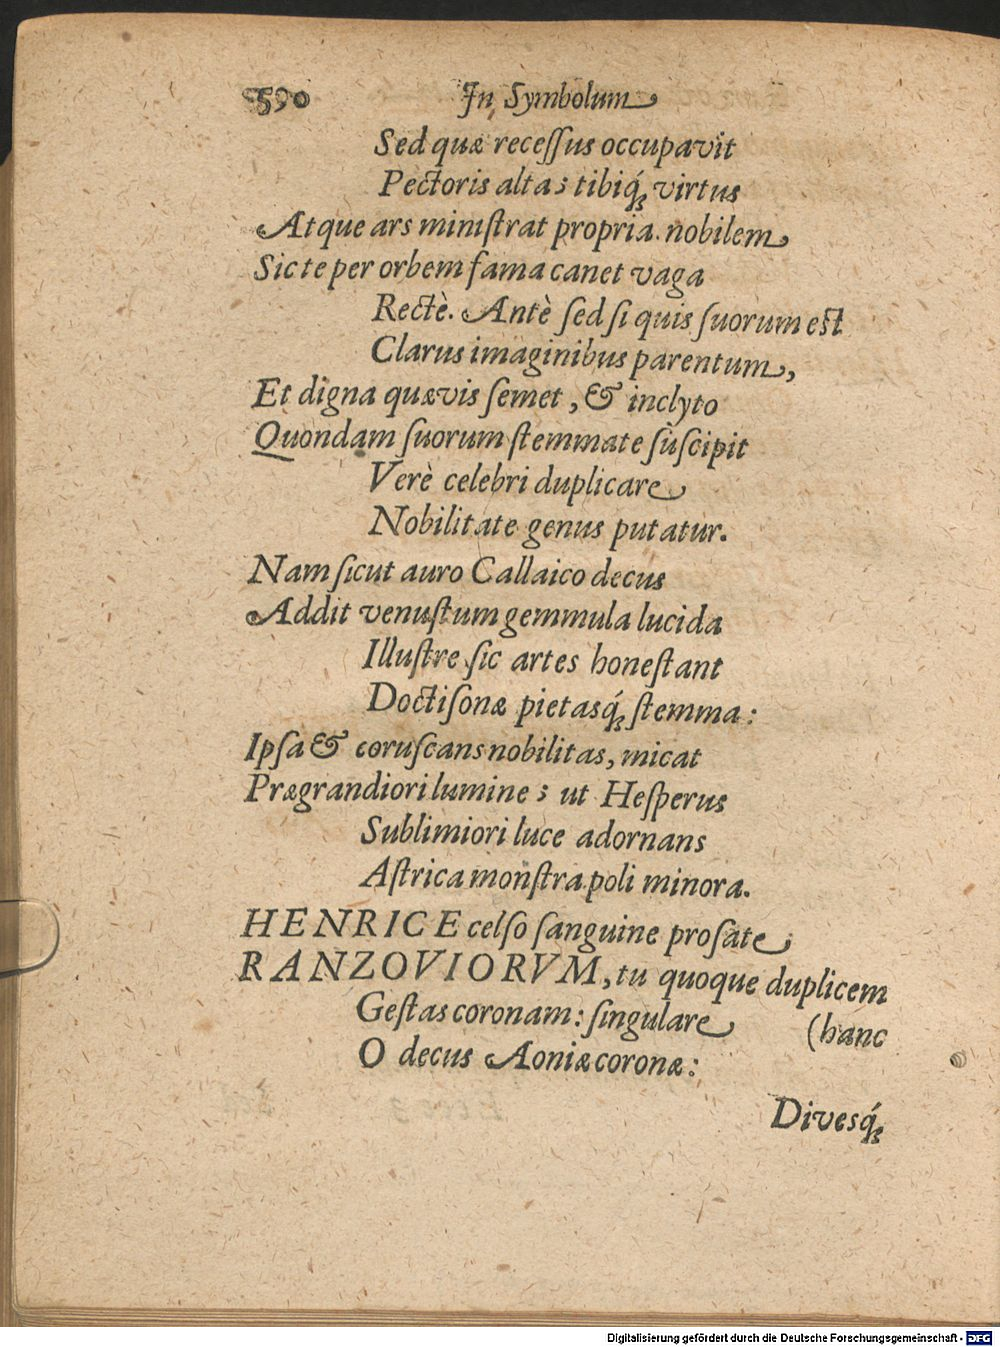 590 In Symbolum
Sed quæ recessus occupavit
Pectoris alta; tibiq́; virtus
Atque ars ministrat propria. nobilem
Sic te per orbem fama canet vaga
Rectè. Antè sed si quis suorum est
Clarus imaginibus parentum,
Et digna quævis semet, & inclyto
Quondam suorum stemmate suscipit
Verè celebri duplicare
Nobilitate genus putatur.
Nam sicut auro Callaico decus
Addit venustum gemmula lucida
Illustre sic artes honestant
Doctisonæ pietasq́; stemma:
Ipsa & coruscans nobilitas, micat
Prægrandiori lumine; ut Hesperus
Sublimiori luce adornans
Astrica monstra poli minora.
HENRICE celso sanguine prosate
RANZOVIORVM, tu quoque duplicem
Gestas coronam: singulare (hanc
O decus Aoniæ coronæ:
Divesq́;
Digitalisierung gefördert durch die Deutsche Forschungsgemeinschaft - DFG